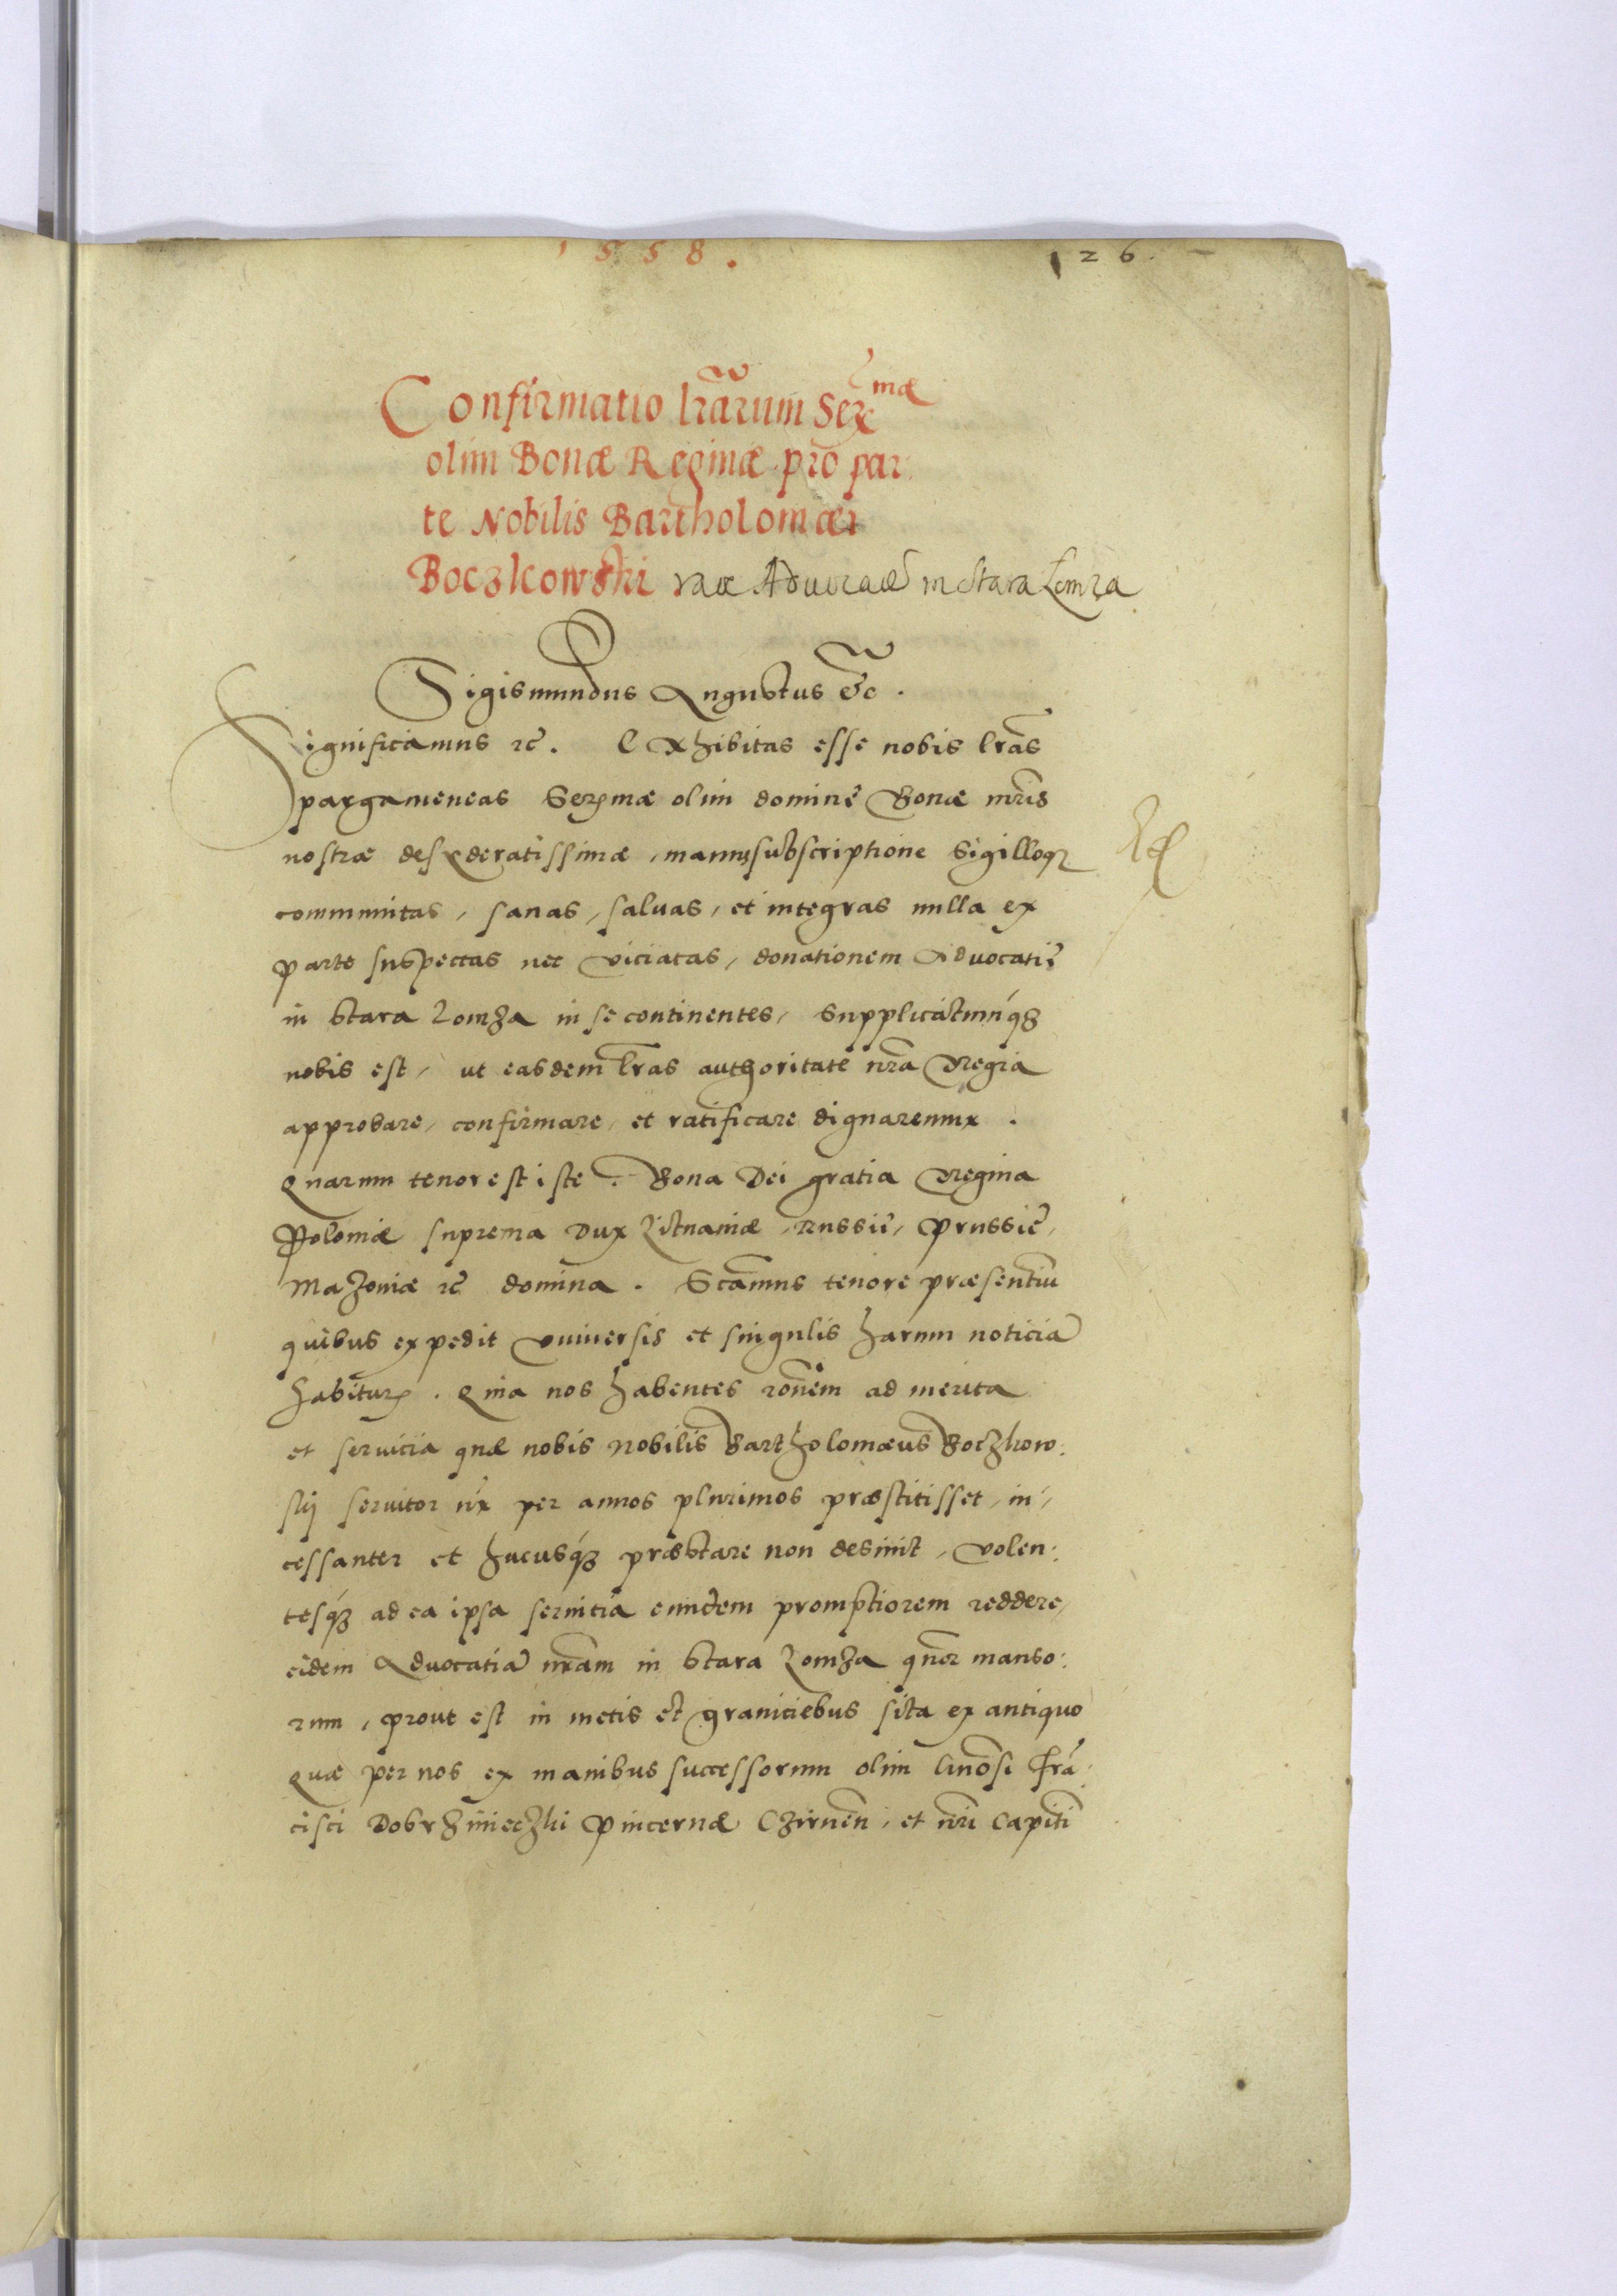 1558.
126.
Confirmatio lr̃arum Ser^mæ
olim Bonæ Reginæ pro par
te Nobilis Bartholomæi
Boczkowski rae Aduocatiae in Stara Lomza
Sigismundus Augustus &c.
Significamus &c. Exhibitas esse nobis lr̃as
pargameneas Serꝫmæ olim dominę Bonæ mr̃is
nostræ desyderatissimæ, manussubscriptione Sigilloqꝫ
communitas, sanas, saluas, et integras nulla ex
parte suspectas nec viciatas, donationem Aduocatię
in Stara Lomza in se continentes, Supplicatumqꝫ
nobis est, ut easdem lr̃as authoritate nr̃a Regia
approbare, confirmare, et ratificare dignaremur.
Quarum tenor est iste. Bona Dei gratia Regina
Poloniæ suprema Dux Lituaniæ, Russię, Prussię,
Mazoniæ &c domina. Sc̃amus tenore præsentiũ
quibus expedit vniuersis et singulis harum noticiã
habiturꝫ. Quia nos habentes rõnem ad merita
et seruicia quæ nobis Nobilis Bartholomæus Boczkow:
skij seruitor nr̃ per annos plurimos præstitisset, in,
cessanter et hucusqꝫ præstare non desinit, volen:
tesqꝫ ad ea ipsa seruitia eundem promptiorem reddere,
eidem Aduocatiã nr̃am in Stara Lomza qũor manso:
rum, prout est in metis et graniciebus sita ex antiquo
Quæ per nos ex manibus successorum olim Gñosi Frã
cisci Dobrzinieczki Pincernæ Czirneñ, et nr̃i Capitñ